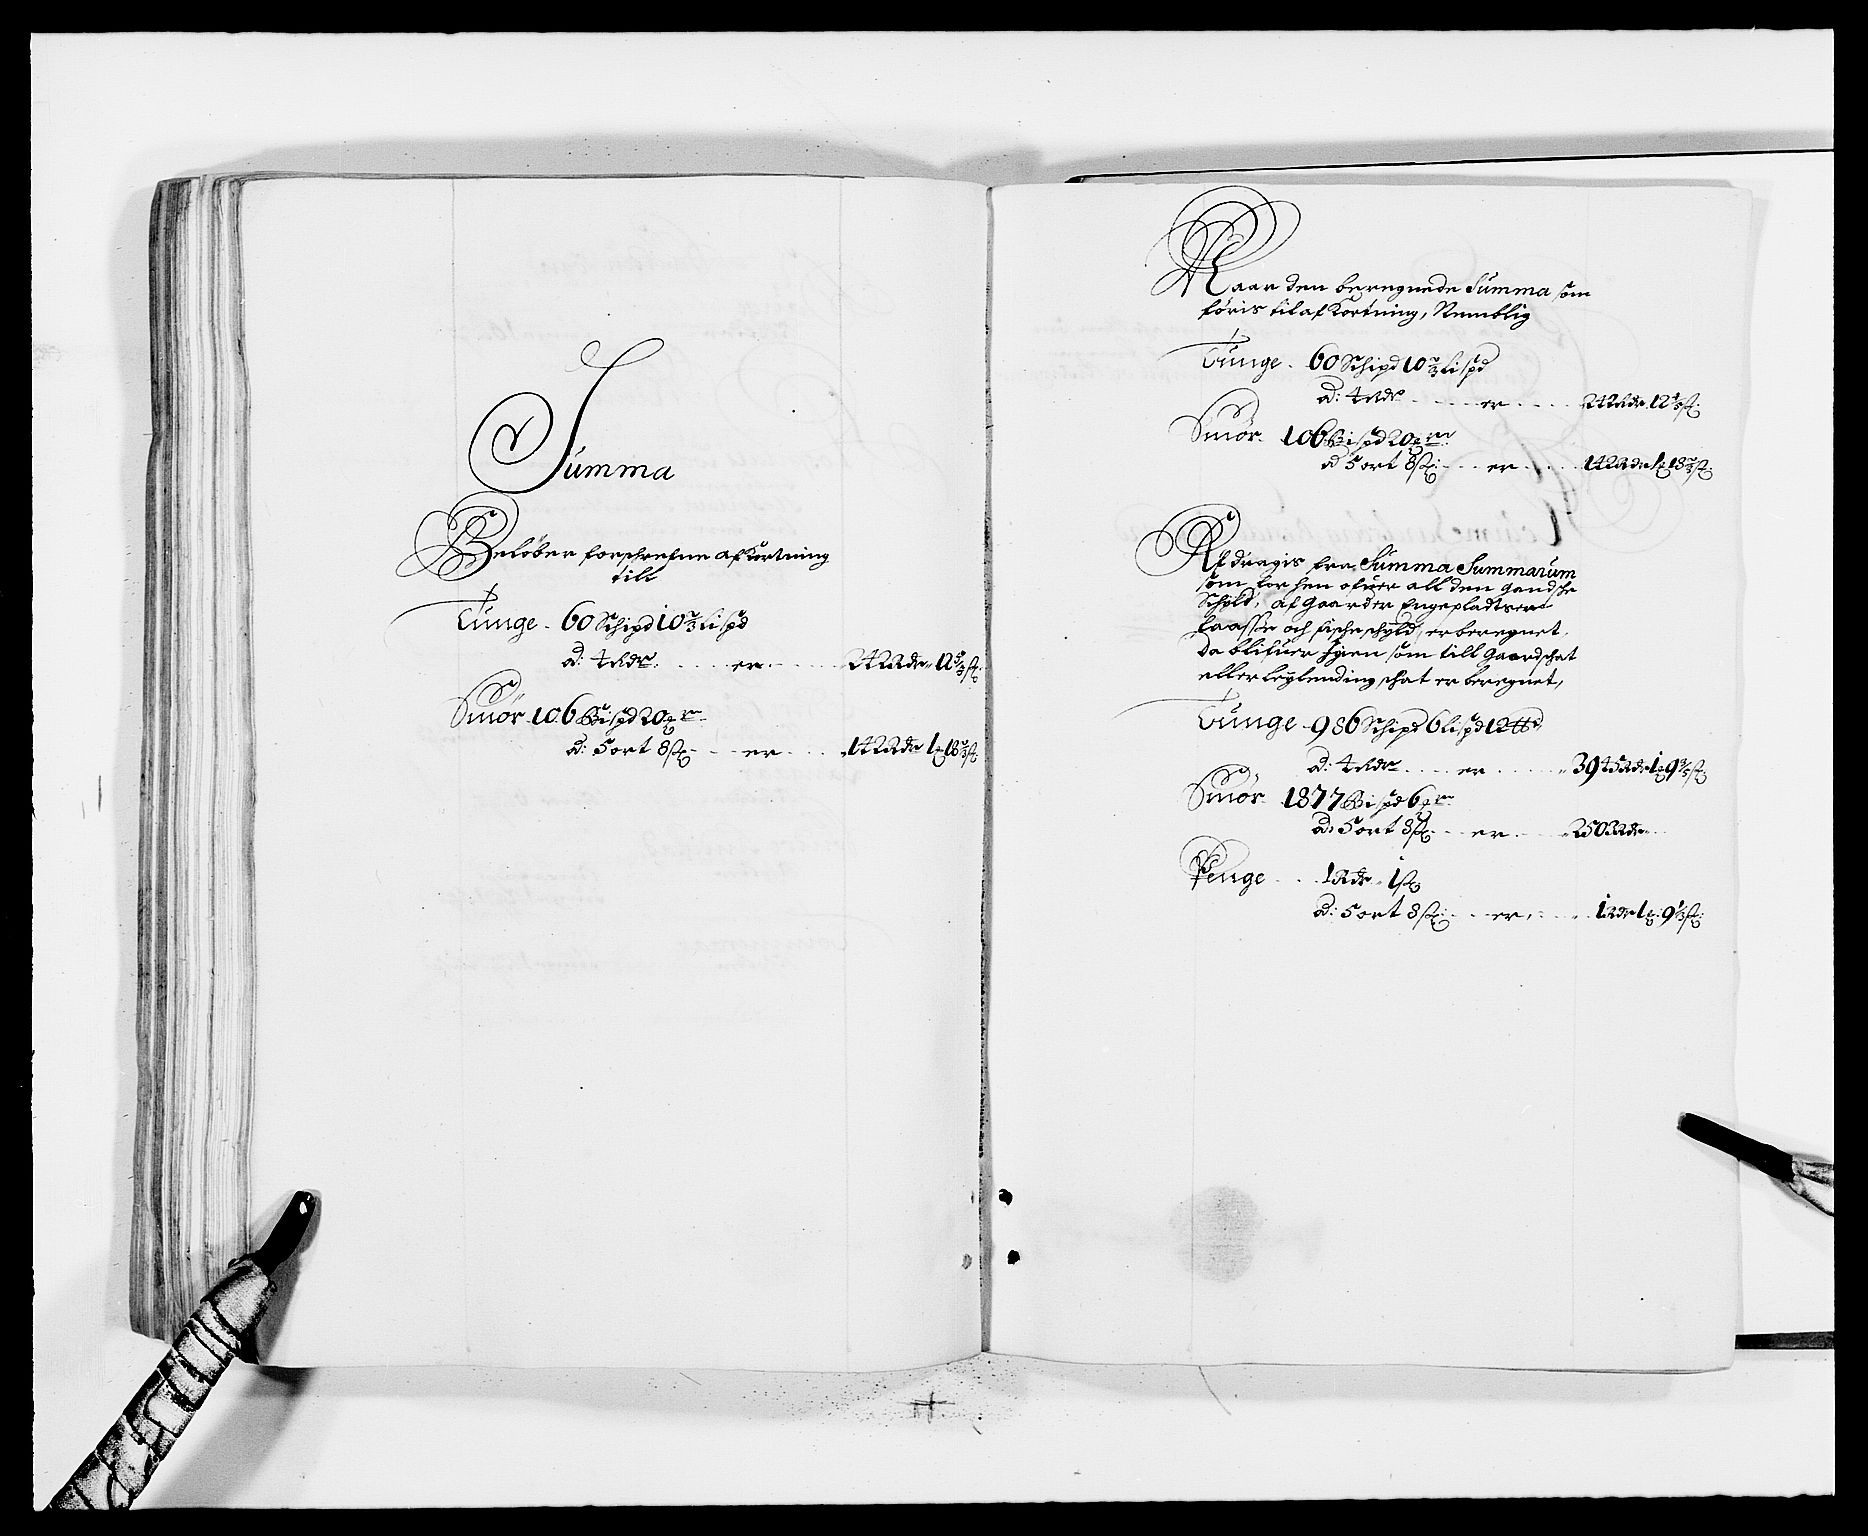 Summa
Beløber forschrefne afkortning
till
Tunge - 60 Schipd 10⅔ lispd
ad: 4 Rdr ..... er ..... 242 Rdr 12⅘ s
Smör 106 Bispd 20 mr
ad: 5 ort 8 s ... er .... 142 Rdr 1 18⅔ s
Naar den beregnede Summa som
føris til afkortning, Nemblig
Tunge - 60 Schipd 10⅔ lispd
ad: 4 Rdr ..... er .... 242 Rdr 12⅘ s
Smör 106 Bispd 20 mr
ad 5 ort 8 s ... er .... 142 Rdr 1 18⅔ s
Afdragis fra Summa Summarum
som for hen ofuer all den Gandsche
Schyld, af Gaarder Engepladtser
Laasse och fische schyld, er beregnet,
da blifuer igien som till Gaardschat
eller leylending schat er beregnet,
Tunge - 986 Schipd 6 lispd 12
ad: 4 Rdr .... er ..... 3945 Rdr 1 9⅗ s
Smör 1877 Bispd 6 mr
ad: 5 ort 8 s ... er .... 2503 Rdr
Penge ... 1 Rdr - 1 s
ad: 5 ort 8 s ... er .... 1 Rdr 1 9⅓ s